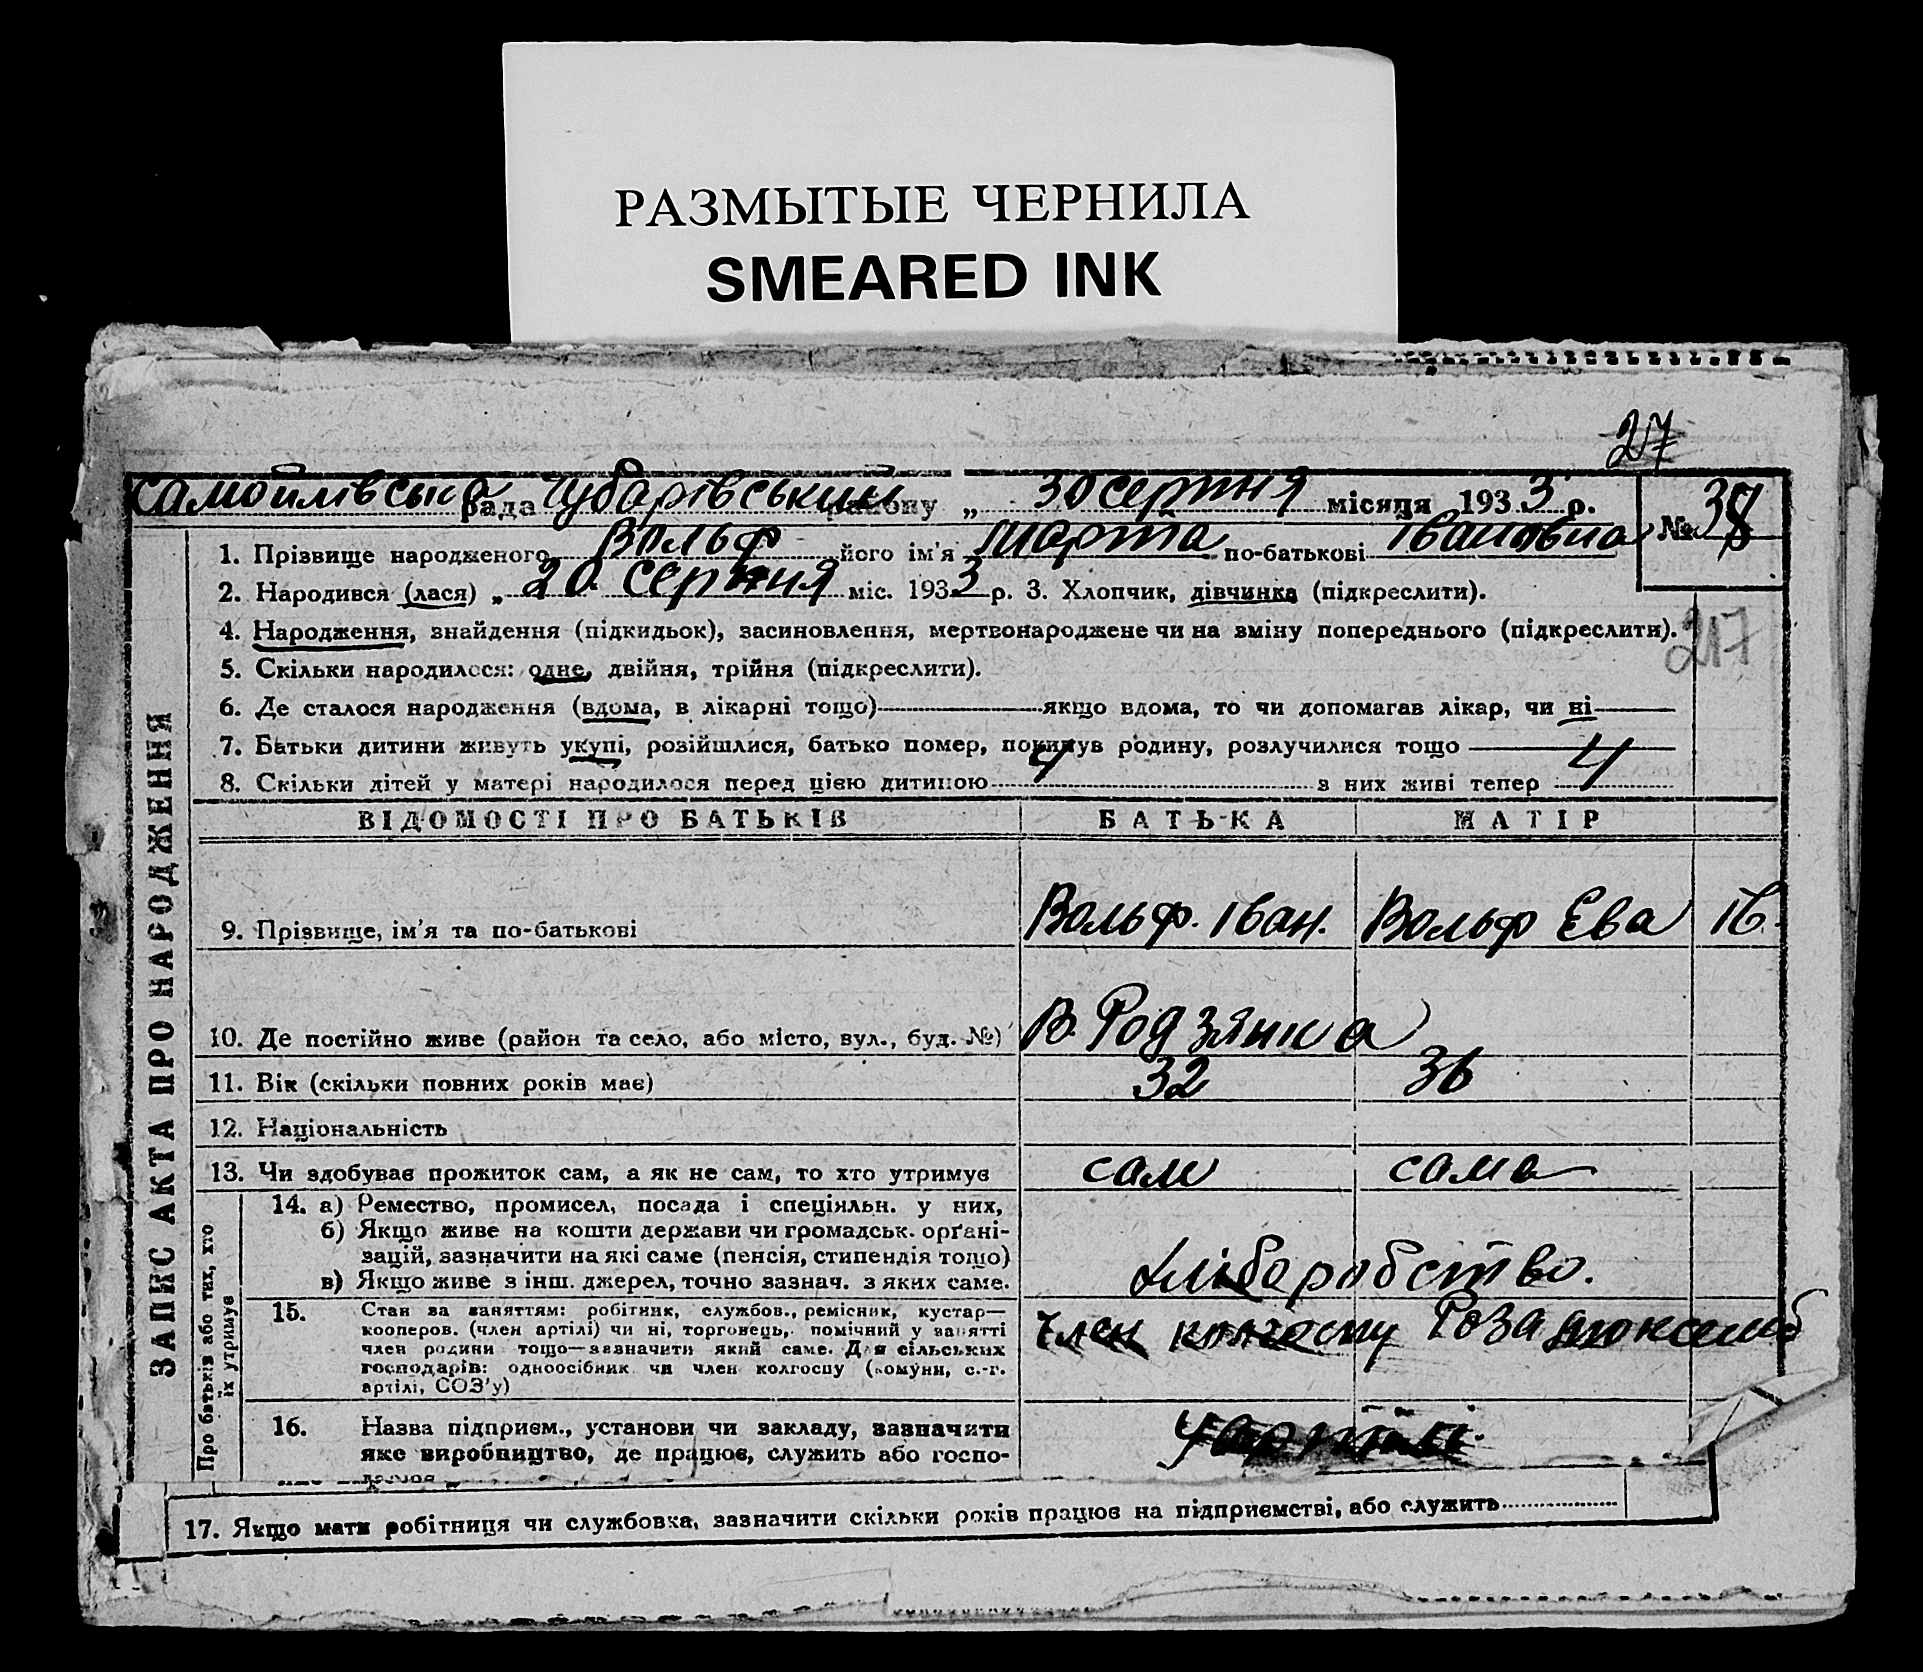 РАЗМЫТЫЕ ЧЕРНИЛА
SMEARED INK
27
Самойлівська рада Чубарівський району „ 30 серпня місяця 1933 р.
№
1. Прізвище народженого Вольф його ім'я Марта по-батькові Івановна
2. Народився (лася) „ 20 серпня міс. 1933 р. 3. Хлопчик, дівчинка (підкреслити).
4. Народження, знайдення (підкидьок), засиновлення, мертвонароджене чи на зміну попереднього (підкреслити).
217
5. Скільки народилося: одне, двійня, трійня (підкреслити).
6. Де сталося народження (вдома, в лікарні тощо) якщо вдома, то чи допомагав лікар, чи ні
7. Батьки дитини живуть укупі, розійшлися, батько помер, покинув родину, розлучилися тощо
8. Скільки дітей у матері народилося перед цією дитиною 4 з них живі тепер 4
ЗАПИС АКТА ПРО НАРОДЖЕННЯ
ВІДОМОСТІ ПРО БАТЬКІВ БАТЬКА МАТІР
9. Прізвище, ім'я та по-батькові Вольф. Іван. Вольф Ева Ів.
10. Де постійно живе (район та село, або місто, вул., буд. №) В. Родзянка
11. Вік (скільки повних років має) 32 36
12. Національність
13. Чи здобуває прожиток сам, а як не сам, то хто утримує сам сама
Про батьків або тих, хто їх утримує
14. а) Ремество, промисел, посада і спеціяльн. у них,
б) Якщо живе на кошти держави чи громадськ. орґані-
зацій, зазначити на які саме (пенсія, стипендія тощо)
в) Якщо живе з інш. джерел, точно зазнач. з яких саме.
хліборобство.
15. Стан за заняттям: робітник, службов., ремісник, кустар—
кооперов. (член артілі) чи ні, торговець, помічний у занятті
член родини тощо—зазначити який саме. Для сільських
господарів: одноосібник чи член колгоспу (комуни, с.-г.
артілі, СОЗ'у)
Член колгоспу Роза Люксемб
16. Назва підприєм., установи чи закладу, зазначити
яке виробництво, де працює, служить або госпо-
17. Якщо мати робітниця чи службовка, зазначити скільки років працює на підприємстві, або служить